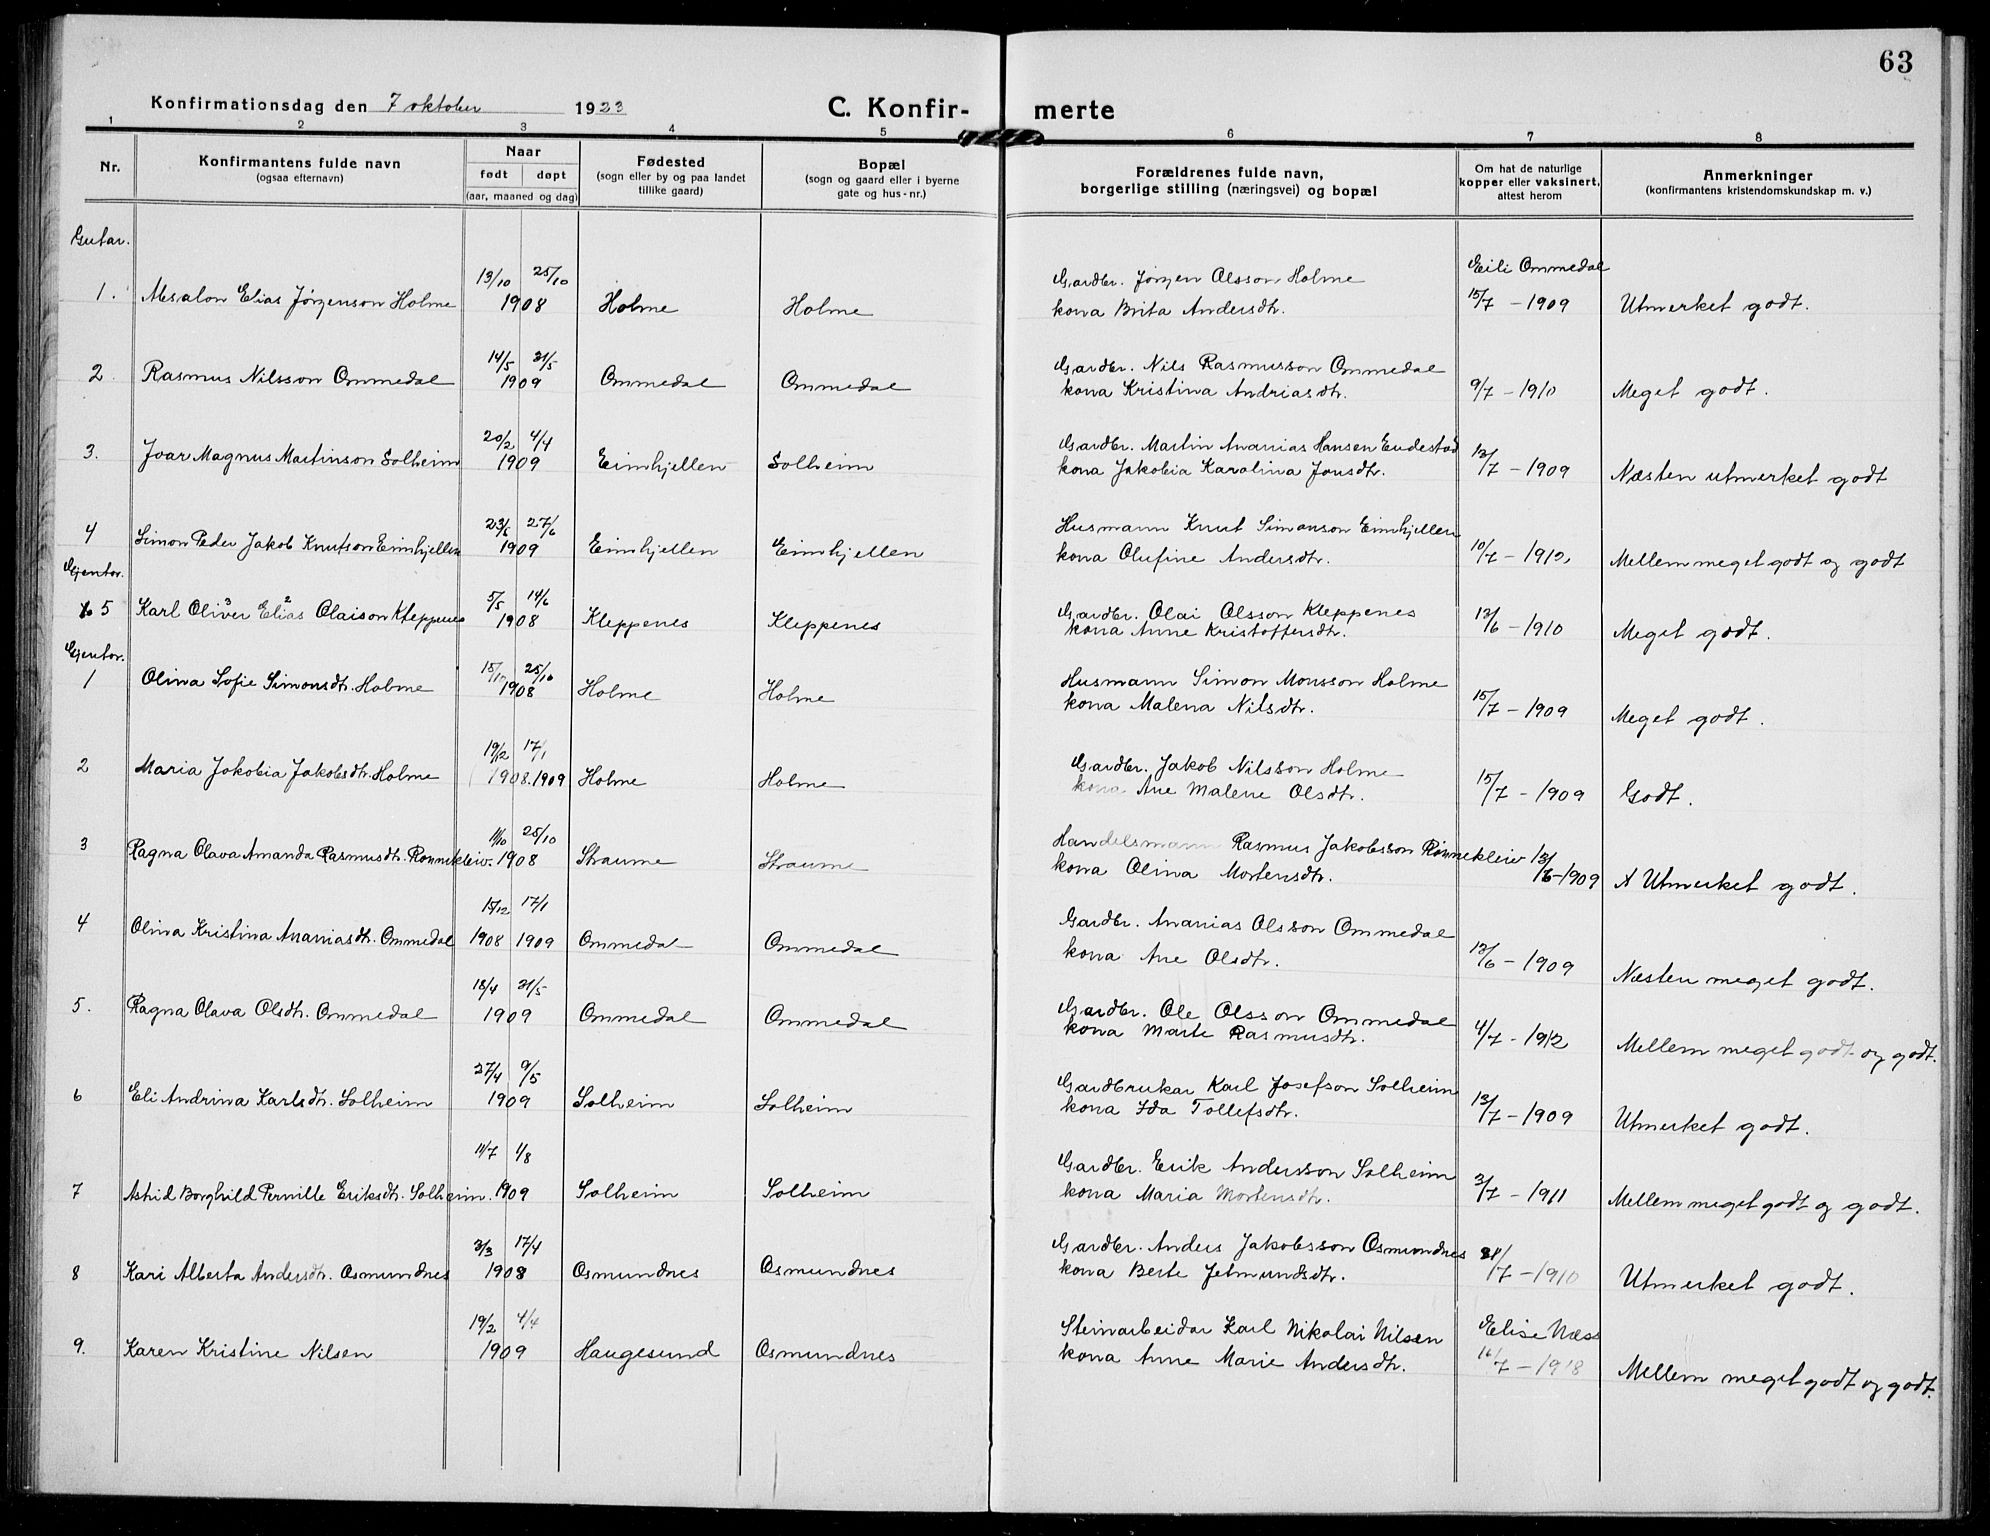 63
Konfirmationsdag den 7 oktober 1923
C. Konfirmerte
1 2 3 4 5 6 7 8
Nr.
Konfirmantens fulde navn
(ogsaa efternavn)
Naar
født døpt
(aar, maaned og dag)
Fødested
(sogn eller by og paa landet
tillike gaard)
Bopæl
(sogn og gaard eller i byerne
gate og hus-nr.)
Forældrenes fulde navn,
borgerlige stilling (næringsvei) og bopæl
Om hat de naturlige
kopper eller vaksinert,
attest herom
Anmerkninger
(konfirmantens kristendomskundskap m. v.)
Gutar.
1. Absalon Elias Jørgenson Holme 13/10 25/10 1908 Holme Holme Gardbr. Jørgen Olsson Holme Eili Ommedal
kona Brita Andersdtr. 15/7 - 1909 Utmerket godt.
2. Rasmus Nilsson Ommedal 14/5 31/5 1909 Ommedal Ommedal Gardbr. Nils Rasmusson Ommedal
kona Kristina Andriasdtr. 9/7 - 1910 Meget godt.
3. Joar Magnus Martinson Solheim 20/2 4/4 1909 Eimhjellen Solheim Gardbr. Martin Ananias Hansen Endestad
kona Jakobia Karolina Jonsdtr. 12/7 - 1909 Næsten utmerket godt
4 Simon Peder Jakob Knutson Eimhjellen 23/5 27/6 1909 Eimhjellen Eimhjellen Husmann Knut Simonson Eimhjellen
kona Olufine Andersdtr. 10/7 - 1912 Mellem meget godt og godt
Gjentor.
5 Karl Oliver 3 Elias 2 Olaison Kleppenes 5/5 14/6 1908 Kleppenes Kleppenes Gardbr. Olai Olsson Kleppenes
kona Anne Kristoffersdtr. 13/6 - 1910 Meget godt.
Gjentor.
1 Olina Sofie Simonsdtr. Holme 15/10 25/10 1908 Holme Holme Husmann Simon Monsson Holme
kona Malena Nilsdtr. 15/7 - 1909 Meget godt.
2 Maria Jakobia Jakobsdtr. Holme 19/12 17/1 1908. 1909 Holme Holme Gardbr. Jakob Nilsson Holme
kona Ane Malene Olsdtr. 15/7 - 1909 Godt.
3 Ragna Olava Amanda Rasmusdtr. Rønnekleiv. 11/10 25/10 1908 Straume Straume Handelsmann Rasmus Jakobsson Rønnekleiv
kona Olina Mortensdtr. 13/6 - 1909 Utmerket godt.
4 Olina Kristina Ananiasdtr. Ommedal 15/12 17/1 1908 1909 Ommedal Ommedal Gardbr. Ananias Olsson Ommedal
kona Ane Olsdtr. 12/6 - 1909 Næsten meget godt.
5. Ragna Olava Olsdtr. Ommedal 18/4 31/5 1909 Ommedal Ommedal Gardbr. Ole Olsson Ommedal
kona Marte Rasmusdtr. 4/7 - 1912 Mellem meget godt og godt.
6 Eli Andrina Karlsdtr. Solheim 27/4 9/5 1909 Solheim Solheim Gardbrukar Karl Josefson Solheim
kona Ida Tollefsdtr. 12/7 - 1909 Utmerket godt.
7 Astrid Borghild Pernille Eriksdtr. Solheim. 11/7 1/8 1909 Solheim Solheim Gardbr. Erik Andersson Solheim
kona Maria Mortensdtr. 3/7 - 1911 Mellem meget godt og godt.
8 Kari Alberta Andersdtr. Osmundnes 3/3 17/4 1908 Osmundnes Osmundnes Gardbr. Anders Jakobsson Osmundnes
kona Berte Jetmundsdtr. /7 - 1910 Utmerket godt.
9. Karen Kristine Nilsen 19/2 4/4 1909 Haugesund Osmundnes Steinarbeidar Karl Nikolai Nilsen Elise Næss
kona Anne Marie Andersdtr. 16/7 - 1918 Mellem meget godt og godt.